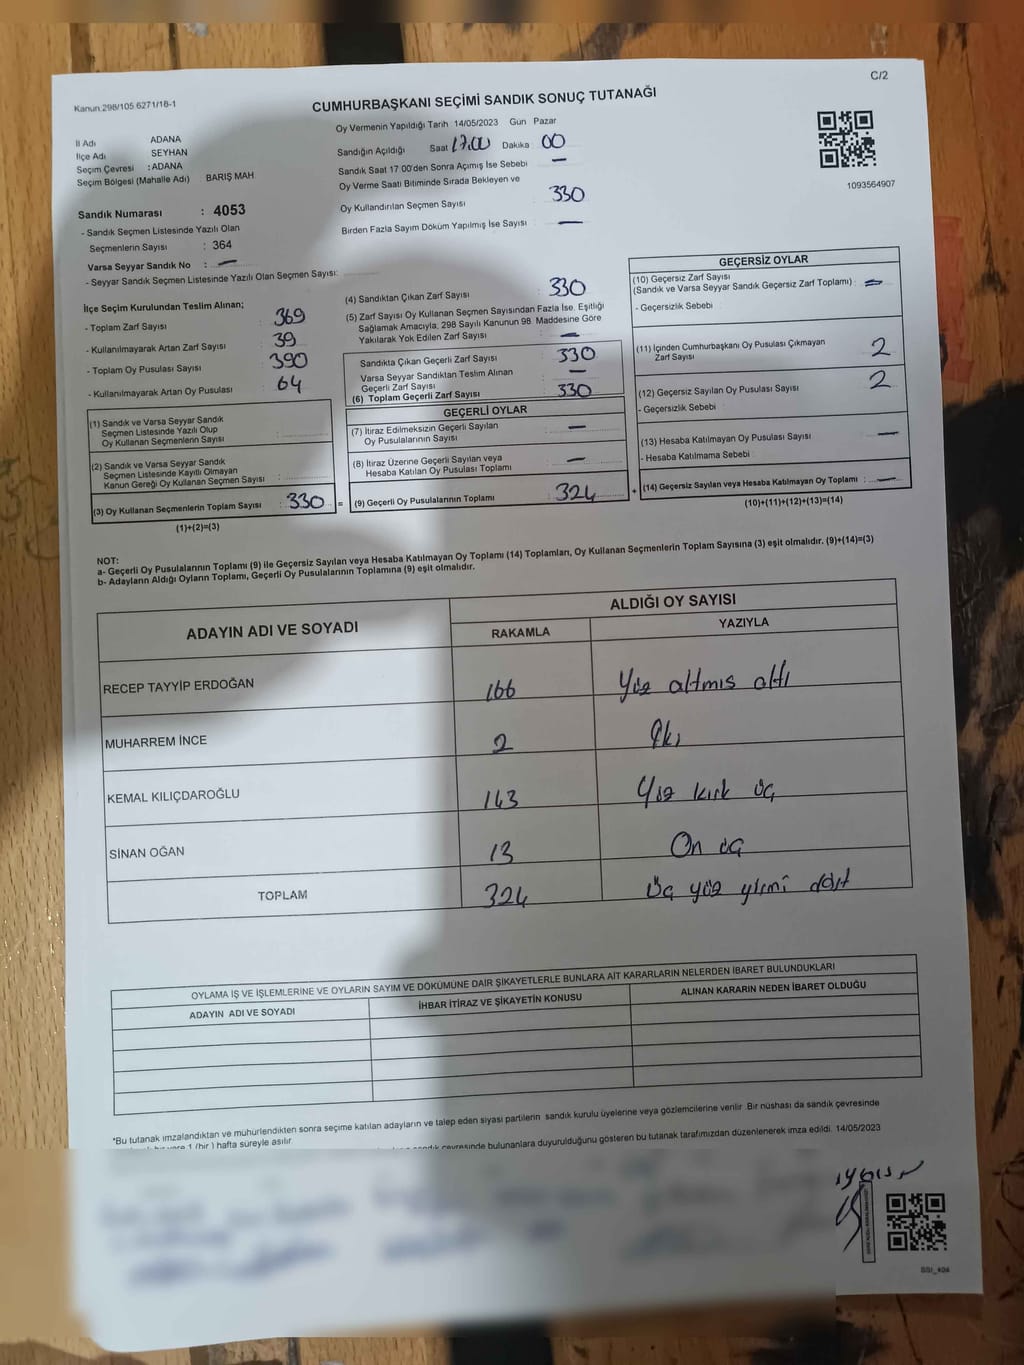 C/2
Kanun:298/105.6271/18-1
CUMHURBAŞKANI SEÇİMİ SANDIK SONUÇ TUTANAĞI
İl Adı ADANA
İlçe Adı SEYHAN
Seçim Çevresi : ADANA
Seçim Bölgesi (Mahalle Adı) BARIŞ MAH
Oy Vermenin Yapıldığı Tarih 14/05/2023 Gün Pazar
Sandığın Açıldığı Saat 17.00 Dakika 00
Sandık Saat 17 00'den Sonra Açımış İse Sebebi —
Oy Verme Saati Bitiminde Sırada Bekleyen ve
Oy Kullandırılan Seçmen Sayısı 330
Birden Fazla Sayım Döküm Yapılmış İse Sayısı —
1093564907
Sandık Numarası : 4053
- Sandık Seçmen Listesinde Yazılı Olan
Seçmenlerin Sayısı : 364
Varsa Seyyar Sandık No : —
- Seyyar Sandık Seçmen Listesinde Yazılı Olan Seçmen Sayısı:
İlçe Seçim Kurulundan Teslim Alınan;
- Toplam Zarf Sayısı : 369
- Kullanılmayarak Artan Zarf Sayısı : 39
- Toplam Oy Pusulası Sayısı : 390
- Kullanılmayarak Artan Oy Pusulası : 64
(1) Sandık ve Varsa Seyyar Sandık
Seçmen Listesinde Yazılı Olup
Oy Kullanan Seçmenlerin Sayısı :
(2) Sandık ve Varsa Seyyar Sandık
Seçmen Listesinde Kayıtlı Olmayan
Kanun Gereği Oy Kullanan Seçmen Sayısı :
(3) Oy Kullanan Seçmenlerin Toplam Sayısı : 330 =
(1)+(2)=(3)
(4) Sandıktan Çıkan Zarf Sayısı : 330
(5) Zarf Sayısı Oy Kullanan Seçmen Sayısından Fazla İse, Eşitliği
Sağlamak Amacıyla, 298 Sayılı Kanunun 98. Maddesine Göre
Yakılarak Yok Edilen Zarf Sayısı : —
Sandıkta Çıkan Geçerli Zarf Sayısı : 330
Varsa Seyyar Sandıktan Teslim Alınan
Geçerli Zarf Sayısı —
(6) Toplam Geçerli Zarf Sayısı : 330
GEÇERLİ OYLAR
(7) İtiraz Edilmeksizin Geçerli Sayılan
Oy Pusulalarının Sayısı : —
(8) İtiraz Üzerine Geçerli Sayılan veya
Hesaba Katılan Oy Pusulası Toplamı : —
(9) Geçerli Oy Pusulalarının Toplamı : 324 +
GEÇERSİZ OYLAR
(10) Geçersiz Zarf Sayısı
(Sandık ve Varsa Seyyar Sandık Geçersiz Zarf Toplamı) : —
- Geçersizlik Sebebi :
(11) İçinden Cumhurbaşkanı Oy Pusulası Çıkmayan
Zarf Sayısı : 2
(12) Geçersiz Sayılan Oy Pusulası Sayısı : 2
- Geçersizlik Sebebi
(13) Hesaba Katılmayan Oy Pusulası Sayısı : —
- Hesaba Katılmama Sebebi :
(14) Geçersiz Sayılan veya Hesaba Katılmayan Oy Toplamı : —
(10)+(11)+(12)+(13)=(14)
NOT:
a- Geçerli Oy Pusulalarının Toplamı (9) ile Geçersiz Sayılan veya Hesaba Katılmayan Oy Toplamı (14) Toplamları, Oy Kullanan Seçmenlerin Toplam Sayısına (3) eşit olmalıdır. (9)+(14)=(3)
b- Adayların Aldığı Oyların Toplamı, Geçerli Oy Pusulalarının Toplamına (9) eşit olmalıdır.
ADAYIN ADI VE SOYADI
ALDIĞI OY SAYISI
RAKAMLA YAZIYLA
RECEP TAYYİP ERDOĞAN 166 Yüz altmış altı
MUHARREM İNCE 2 İki
KEMAL KILIÇDAROĞLU 143 Yüz kırk üç
SİNAN OĞAN 13 On üç
TOPLAM 324 Üç yüz yirmi dört
OYLAMA İŞ VE İŞLEMLERİNE VE OYLARIN SAYIM VE DÖKÜMÜNE DAİR ŞİKAYETLERLE BUNLARA AİT KARARLARIN NELERDEN İBARET BULUNDUKLARI
ADAYIN ADI VE SOYADI
İHBAR İTİRAZ VE ŞİKAYETİN KONUSU
ALINAN KARARIN NEDEN İBARET OLDUĞU
*Bu tutanak imzalandıktan ve mühürlendikten sonra seçime katılan adayların ve talep eden siyasi partilerin sandık kurulu üyelerine veya gözlemcilerine verilir Bir nüshası da sandık çevresinde
1 (bir ) hafta süreyle asılır.
sandık çevresinde bulunanlara duyurulduğunu gösteren bu tutanak tarafımızdan düzenlenerek imza edildi. 14/05/2023